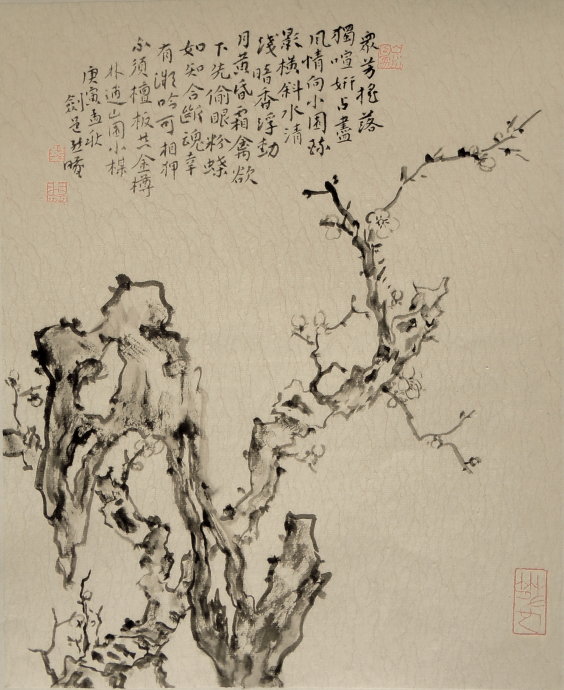 眾芳搖落
獨喧妍占盡
風情向小園疏
影橫斜水清
淺暗香浮動
月黃昏霜禽欲
下先偷眼粉蝶
如知合斷魂幸
有微吟可相狎
不須檀板共金樽
林逋山園小楳
庚寅孟秋
劍邑